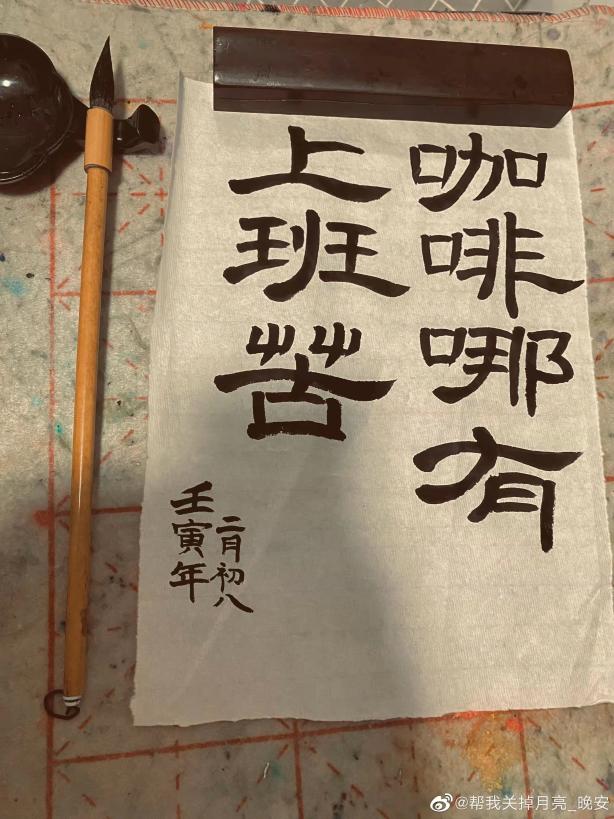 咖啡哪有
上班苦
二月初八
壬寅年
@帮我关掉月亮_晚安